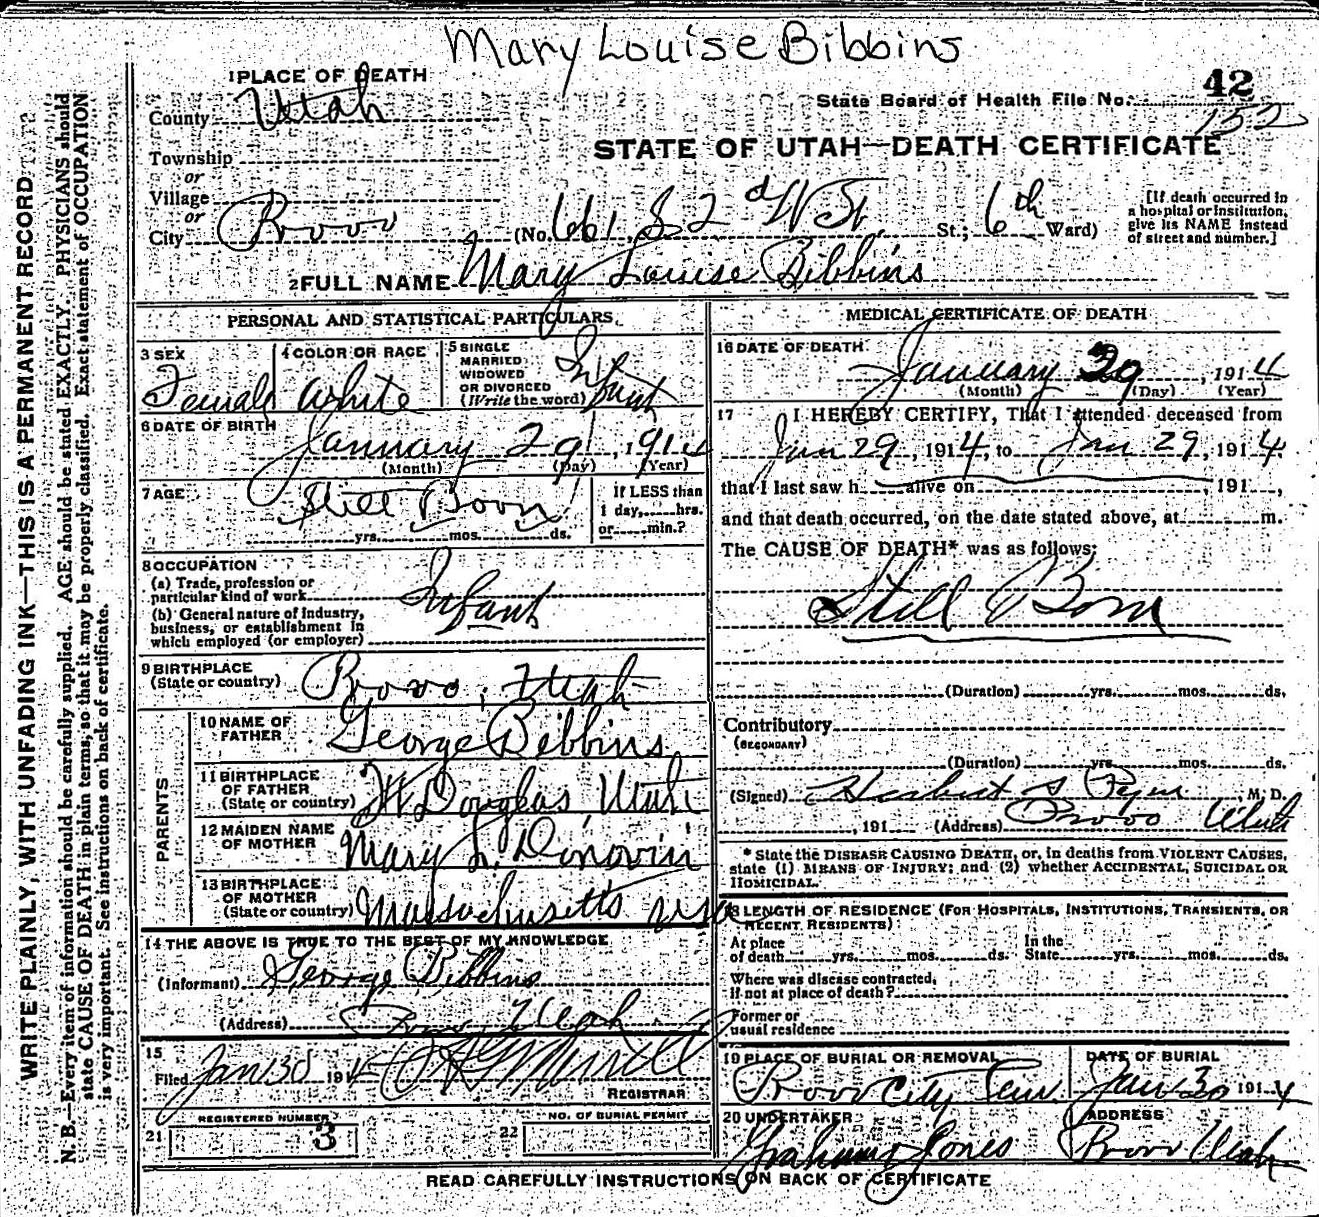 Mary Louise Bibbins
1 PLACE OF DEATH
42
County Utah
State Board of Health File No. 152
Township
STATE OF UTAH—DEATH CERTIFICATE
or
Village
or
City Provo (No. 661 S 2d W St. St.; 6th Ward)
[If death occurred in
a hospital or institution,
give its NAME instead
of street and number.]
2 FULL NAME Mary Louise Bibbins
PERSONAL AND STATISTICAL PARTICULARS
3 SEX
Female
4 COLOR OR RACE
White
5 SINGLE
MARRIED
WIDOWED
OR DIVORCED
(Write the word)
Infant
6 DATE OF BIRTH
January 29, 1914
(Month) (Day) (Year)
7 AGE
Still Born
yrs. mos. ds.
If LESS than
1 day, hrs.
or min.?
8 OCCUPATION
(a) Trade, profession or
particular kind of work
Infant
(b) General nature of industry,
business, or establishment in
which employed (or employer)
9 BIRTHPLACE
(State or country)
Provo, Utah
PARENTS
10 NAME OF
FATHER
George Bibbins
11 BIRTHPLACE
OF FATHER
(State or country)
Ft Douglas, Utah
12 MAIDEN NAME
OF MOTHER
Mary L. Donovin
13 BIRTHPLACE
OF MOTHER
(State or country)
Massachusetts USA
14 THE ABOVE IS TRUE TO THE BEST OF MY KNOWLEDGE
(Informant) George Bibbins
(Address) Provo, Utah
15
Filed Jan 30 1914
Merrill
REGISTRAR
REGISTERED NUMBER
21 3
NO. OF BURIAL PERMIT
22
MEDICAL CERTIFICATE OF DEATH
16 DATE OF DEATH
January 29, 1914
(Month) (Day) (Year)
17 I HEREBY CERTIFY, That I attended deceased from
Jan 29, 1914, to Jan 29, 1914
that I last saw h alive on , 191 ,
and that death occurred, on the date stated above, at m.
The CAUSE OF DEATH* was as follows:
Still Born
(Duration) yrs. mos. ds.
Contributory
(SECONDARY)
(Duration) yrs. mos. ds.
(Signed) Herbert S Pyne, M. D.
, 191 (Address) Provo Utah
* State the DISEASE CAUSING DEATH, or, in deaths from VIOLENT CAUSES,
state (1) MEANS OF INJURY; and (2) whether ACCIDENTAL, SUICIDAL OR
HOMICIDAL.
18 LENGTH OF RESIDENCE (FOR HOSPITALS, INSTITUTIONS, TRANSIENTS, OR
RECENT RESIDENTS)
At place
of death yrs. mos. ds.
In the
State yrs. mos. ds.
Where was disease contracted,
if not at place of death?
Former or
usual residence
19 PLACE OF BURIAL OR REMOVAL
Provo City Cem.
DATE OF BURIAL
Jan 30 1914
20 UNDERTAKER
Graham Jones
ADDRESS
Provo Utah
READ CAREFULLY INSTRUCTIONS ON BACK OF CERTIFICATE
WRITE PLAINLY, WITH UNFADING INK—THIS IS A PERMANENT RECORD
N. B.—Every item of information should be carefully supplied. AGE should be stated EXACTLY. PHYSICIANS should
state CAUSE OF DEATH in plain terms, so that it may be properly classified. Exact statement of OCCUPATION
is very important. See instructions on back of certificate.